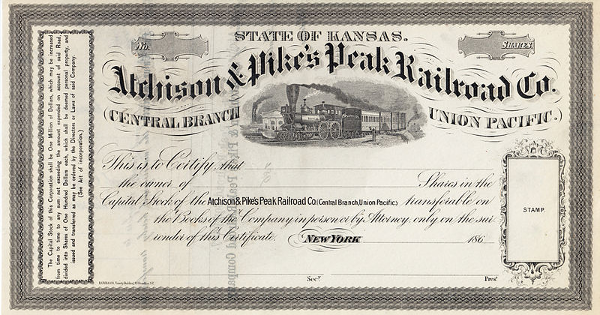 STATE OF KANSAS.
No.
SHARES.
Atchison & Pike's Peak Railroad Co.
(CENTRAL BRANCH
UNION PACIFIC.)
This is to Certify, that
the owner of Shares in the
Capital Stock of the Atchison & Pike's Peak Railroad Co. (Central Branch, Union Pacific) transferable on
the Books of the Company in person or by Attorney, only on the sur-
render of this Certificate. NEW YORK 186
Secy. Prest.
STAMP.
The Capital Stock of this Corporation shall be One Million of Dollars, which may be increased
from time to time to any sum not exceeding the amount expended on account of said Road,
divided into Shares of One Hundred Dollars each, which shall be deemed personal property, and
issued and transferred as may be ordered by the Directors or Laws of said Company.
(See Act of Incorporation.)